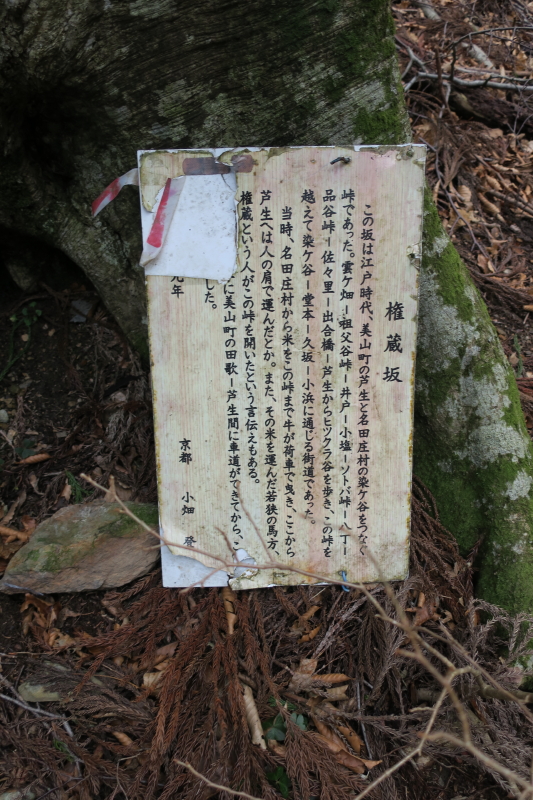 権蔵坂
この坂は江戸時代、美山町の芦生と名田庄村の染ケ谷をつなぐ
峠であった。雲ケ畑ー祖父谷峠ー井戸ー小塩ーソトバ峠ー八丁ー
品谷峠ー佐々里ー出合橋ー芦生からヒツクラ谷を歩き、この峠を
越えて染ケ谷ー堂本ー久坂ー小浜に通じる街道であった。
当時、名田庄村から米をこの峠まで牛が荷車で曳き、ここから
芦生へは人の肩で運んだとか。また、その米を運んだ若狭の馬方、
権蔵という人がこの峠を開いたという言伝えもある。
に美山町の田歌ー芦生間に車道ができてから、こ
した。
元年
京都 小畑 登